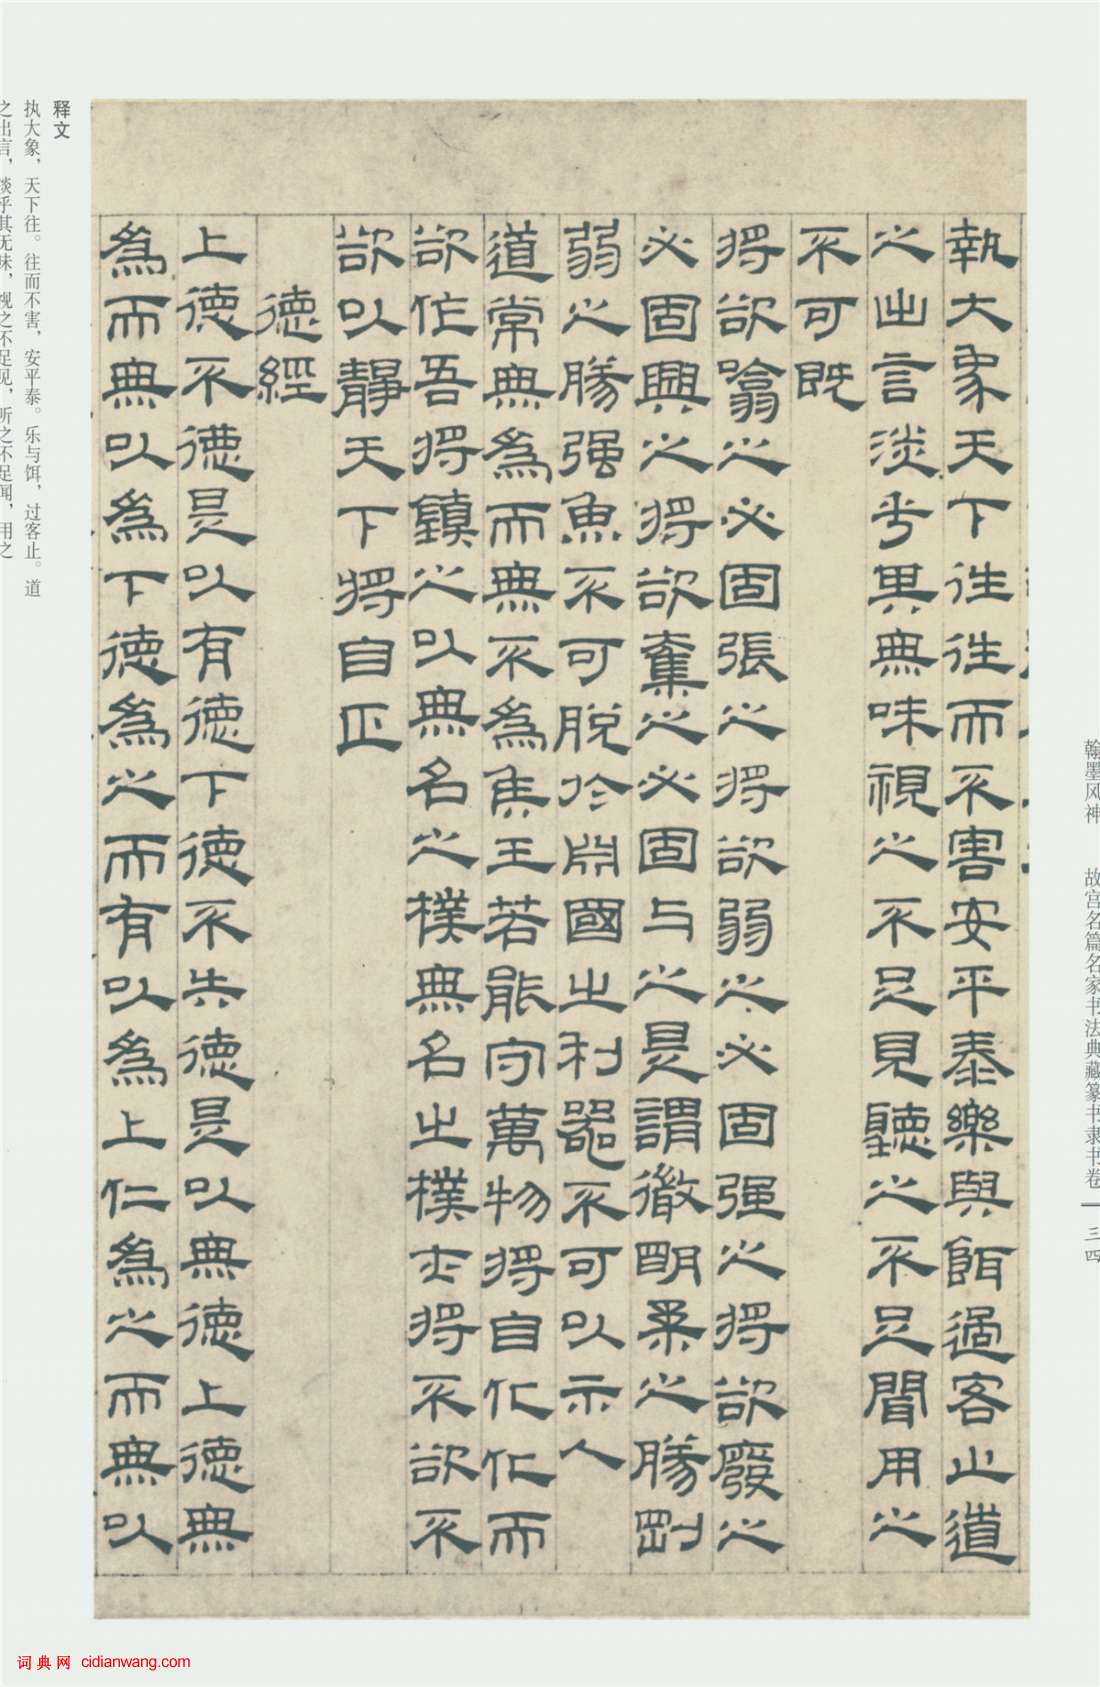 翰墨风神 故宫名篇名家书法典藏篆书隶书卷 三四
執大象天下往往而不害安平泰樂與餌過客止道
之出言淡乎其無味視之不足見聽之不足聞用之
不可既
將欲噏之必固張之將欲弱之必固强之將欲廢之
必固興之將欲奪之必固与之是謂微明柔之勝剛
弱之勝强魚不可脱於淵國之利器不可以示人
道常無為而無不為矦王若能守萬物將自化化而
欲作吾將鎮之以無名之樸無名之樸亦將不欲不
欲以靜天下將自正
德經
上德不德是以有德下德不失德是以無德上德無
為而無以為下德為之而有以為上仁為之而無以
释文
执大象，天下往。往而不害，安平泰。乐与饵，过客止。道
之出言，淡乎其无味，视之不足见，听之不足闻，用之
词典网 cidianwang.com